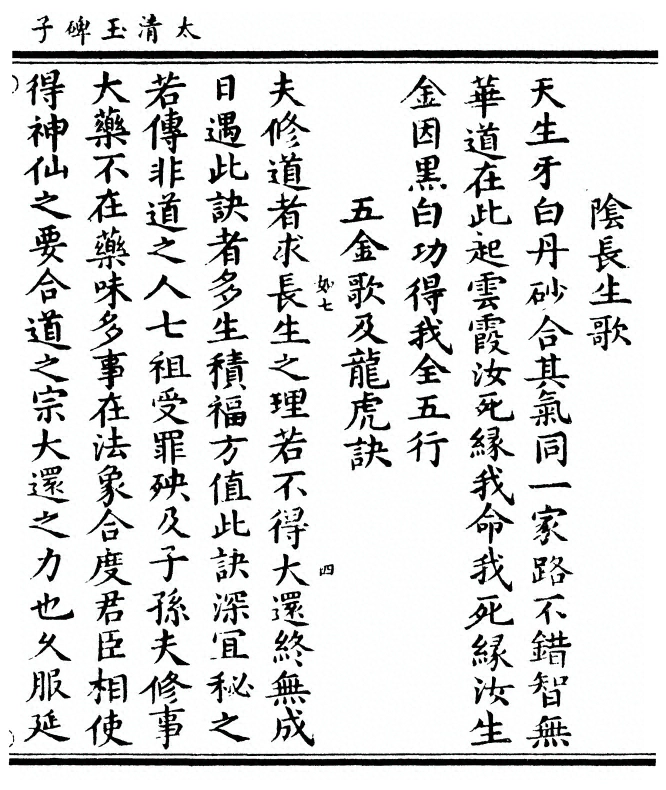 太清玉碑子
陰長生歌
天生牙白丹砂合其氣同一家路不錯智無
華道在此起雲霞汝死緣我命我死緣汝生
金因黑白功得我全五行
五金歌及龍虎訣
妙七
四
夫修道者求長生之理若不得大還終無成
日遇此訣者多生積福方值此訣深冝秘之
若傳非道之人七祖受罪殃及子孫夫修事
大藥不在藥味多事在法象合度君臣相使
得神仙之要合道之宗大還之力也久服延